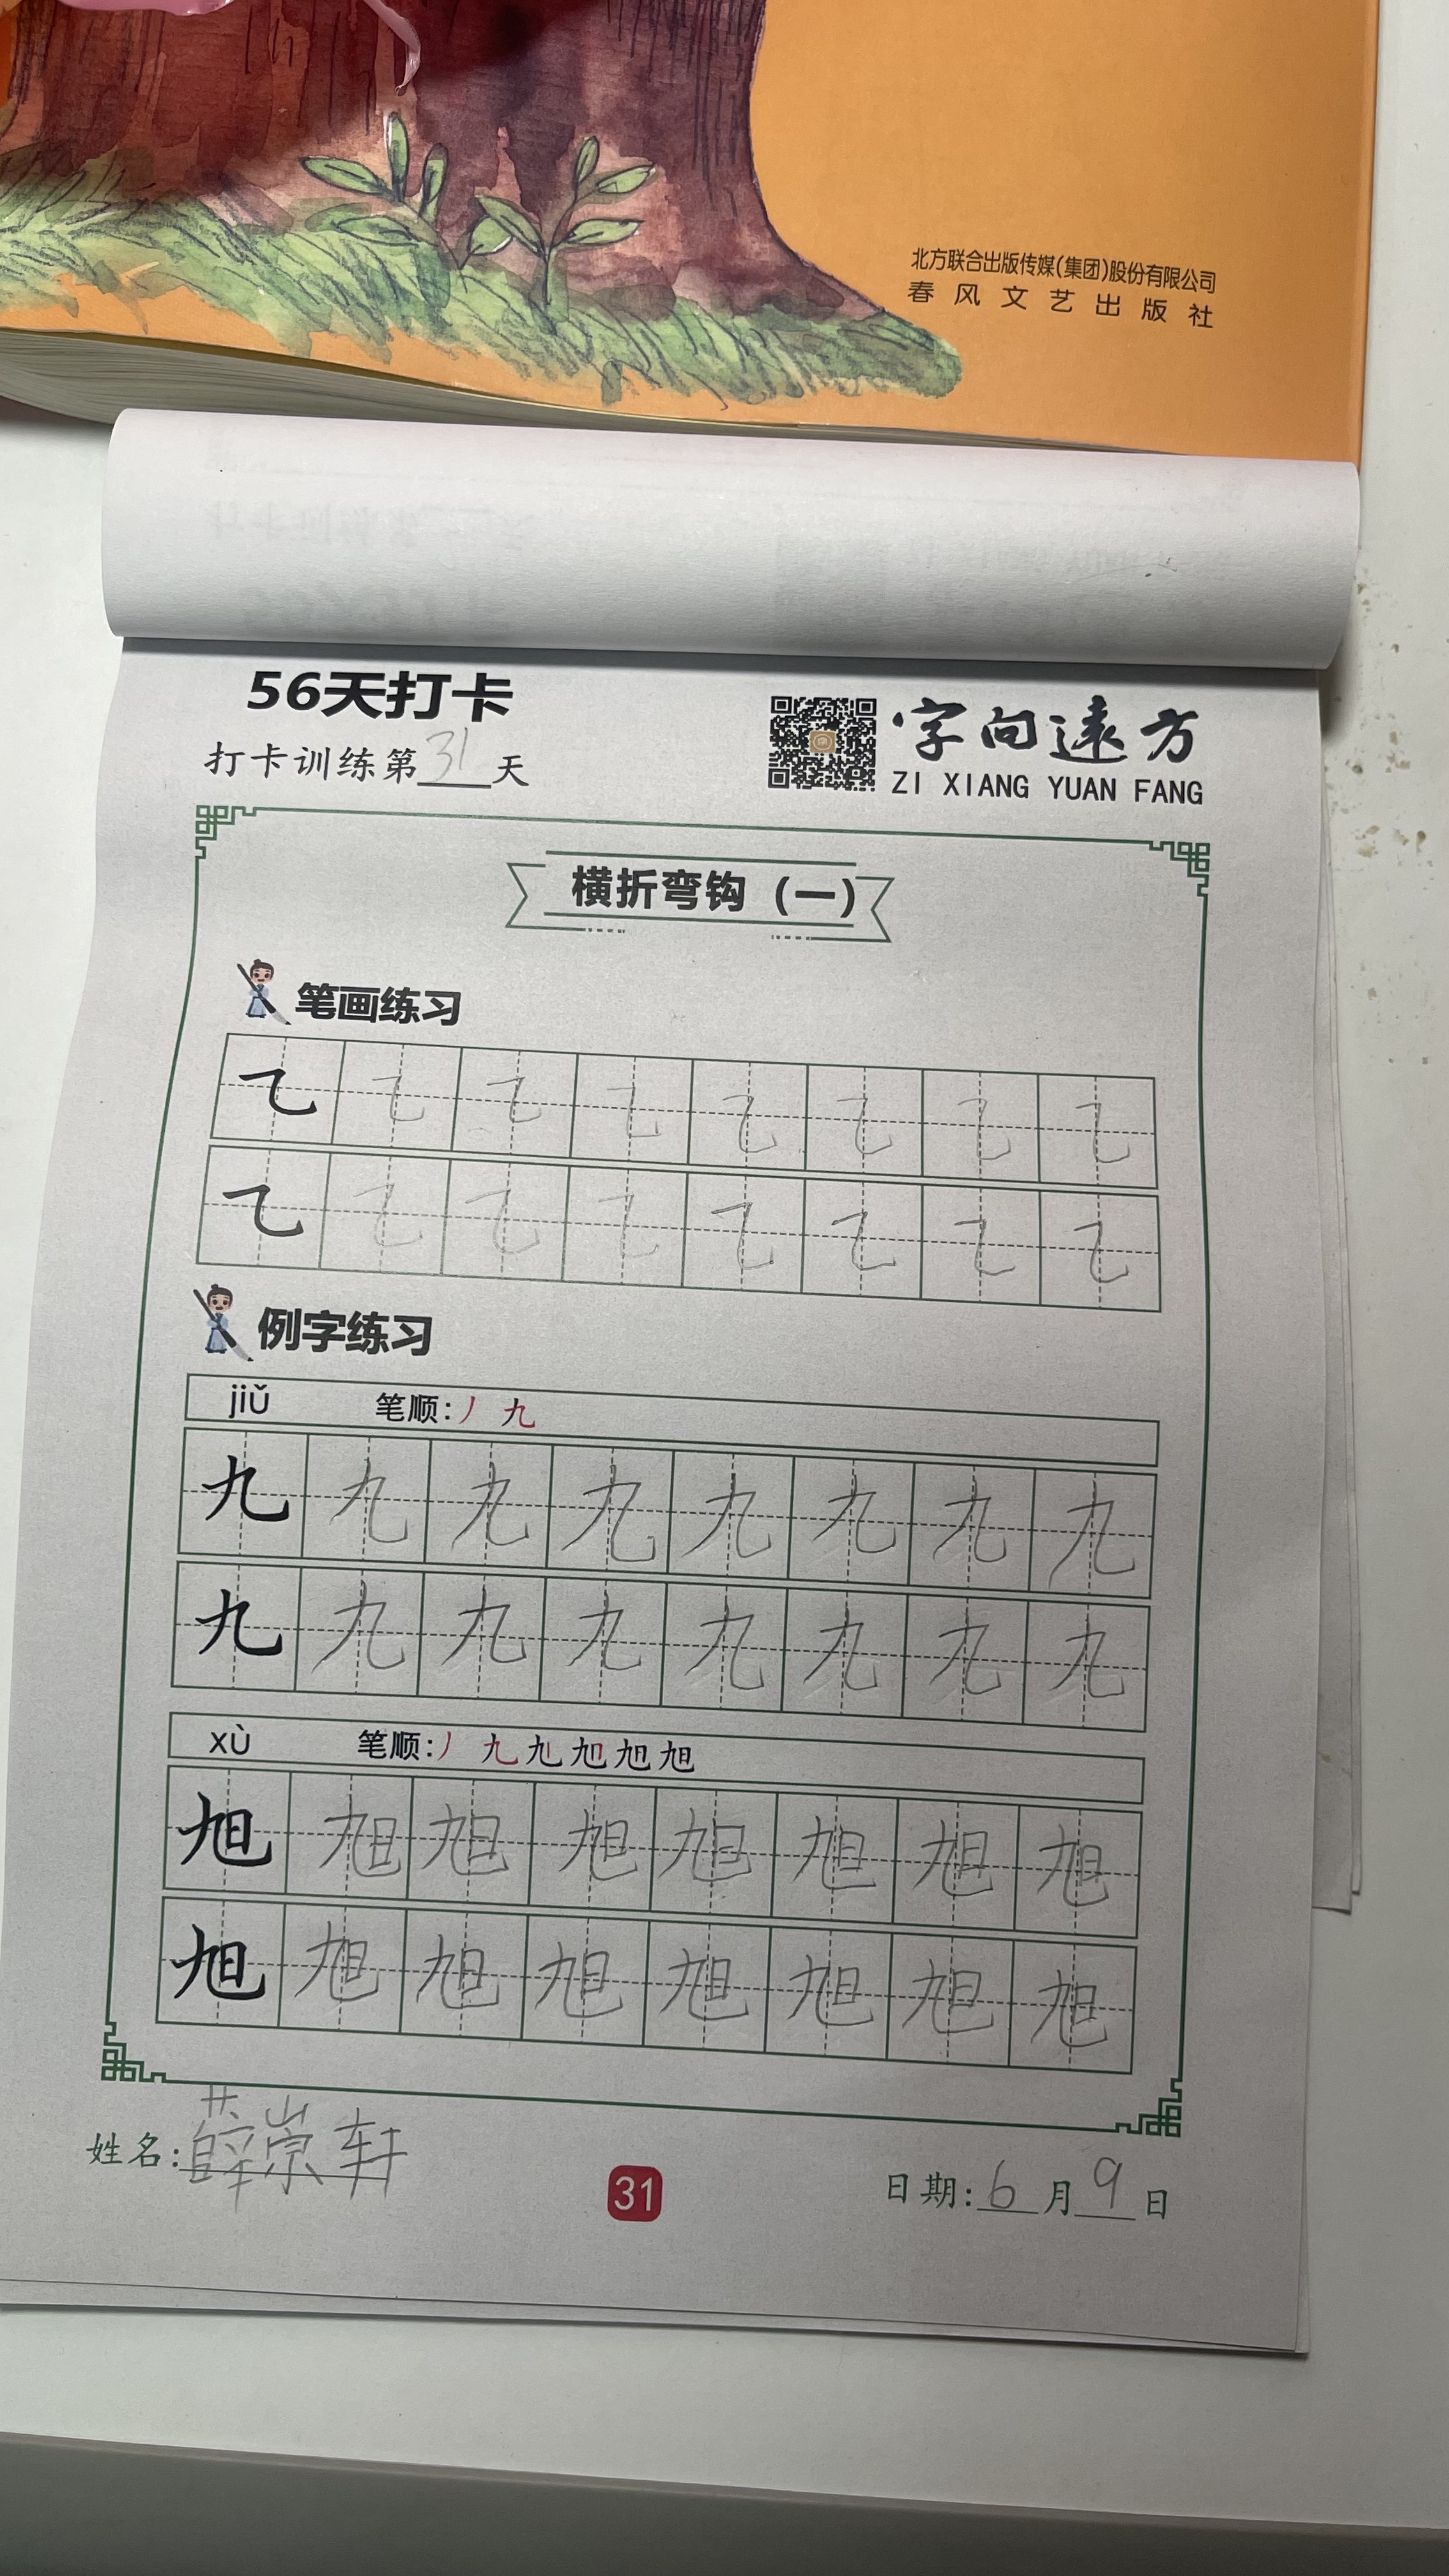 北方联合出版传媒(集团)股份有限公司
春风文艺出版社
56天打卡
打卡训练第31天
字向遠方
ZI XIANG YUAN FANG
横折弯钩（一）
笔画练习
乙 乙 乙 乙 乙 乙 乙 乙
乙 乙 乙 乙 乙 乙 乙 乙
例字练习
jiǔ 笔顺:丿 九
九 九 九 九 九 九 九 九
九 九 九 九 九 九 九 九
xù 笔顺:丿 九 九 旭 旭 旭
旭 旭 旭 旭 旭 旭 旭 旭
旭 旭 旭 旭 旭 旭 旭 旭
姓名:薛崇轩
31
日期:6月9日